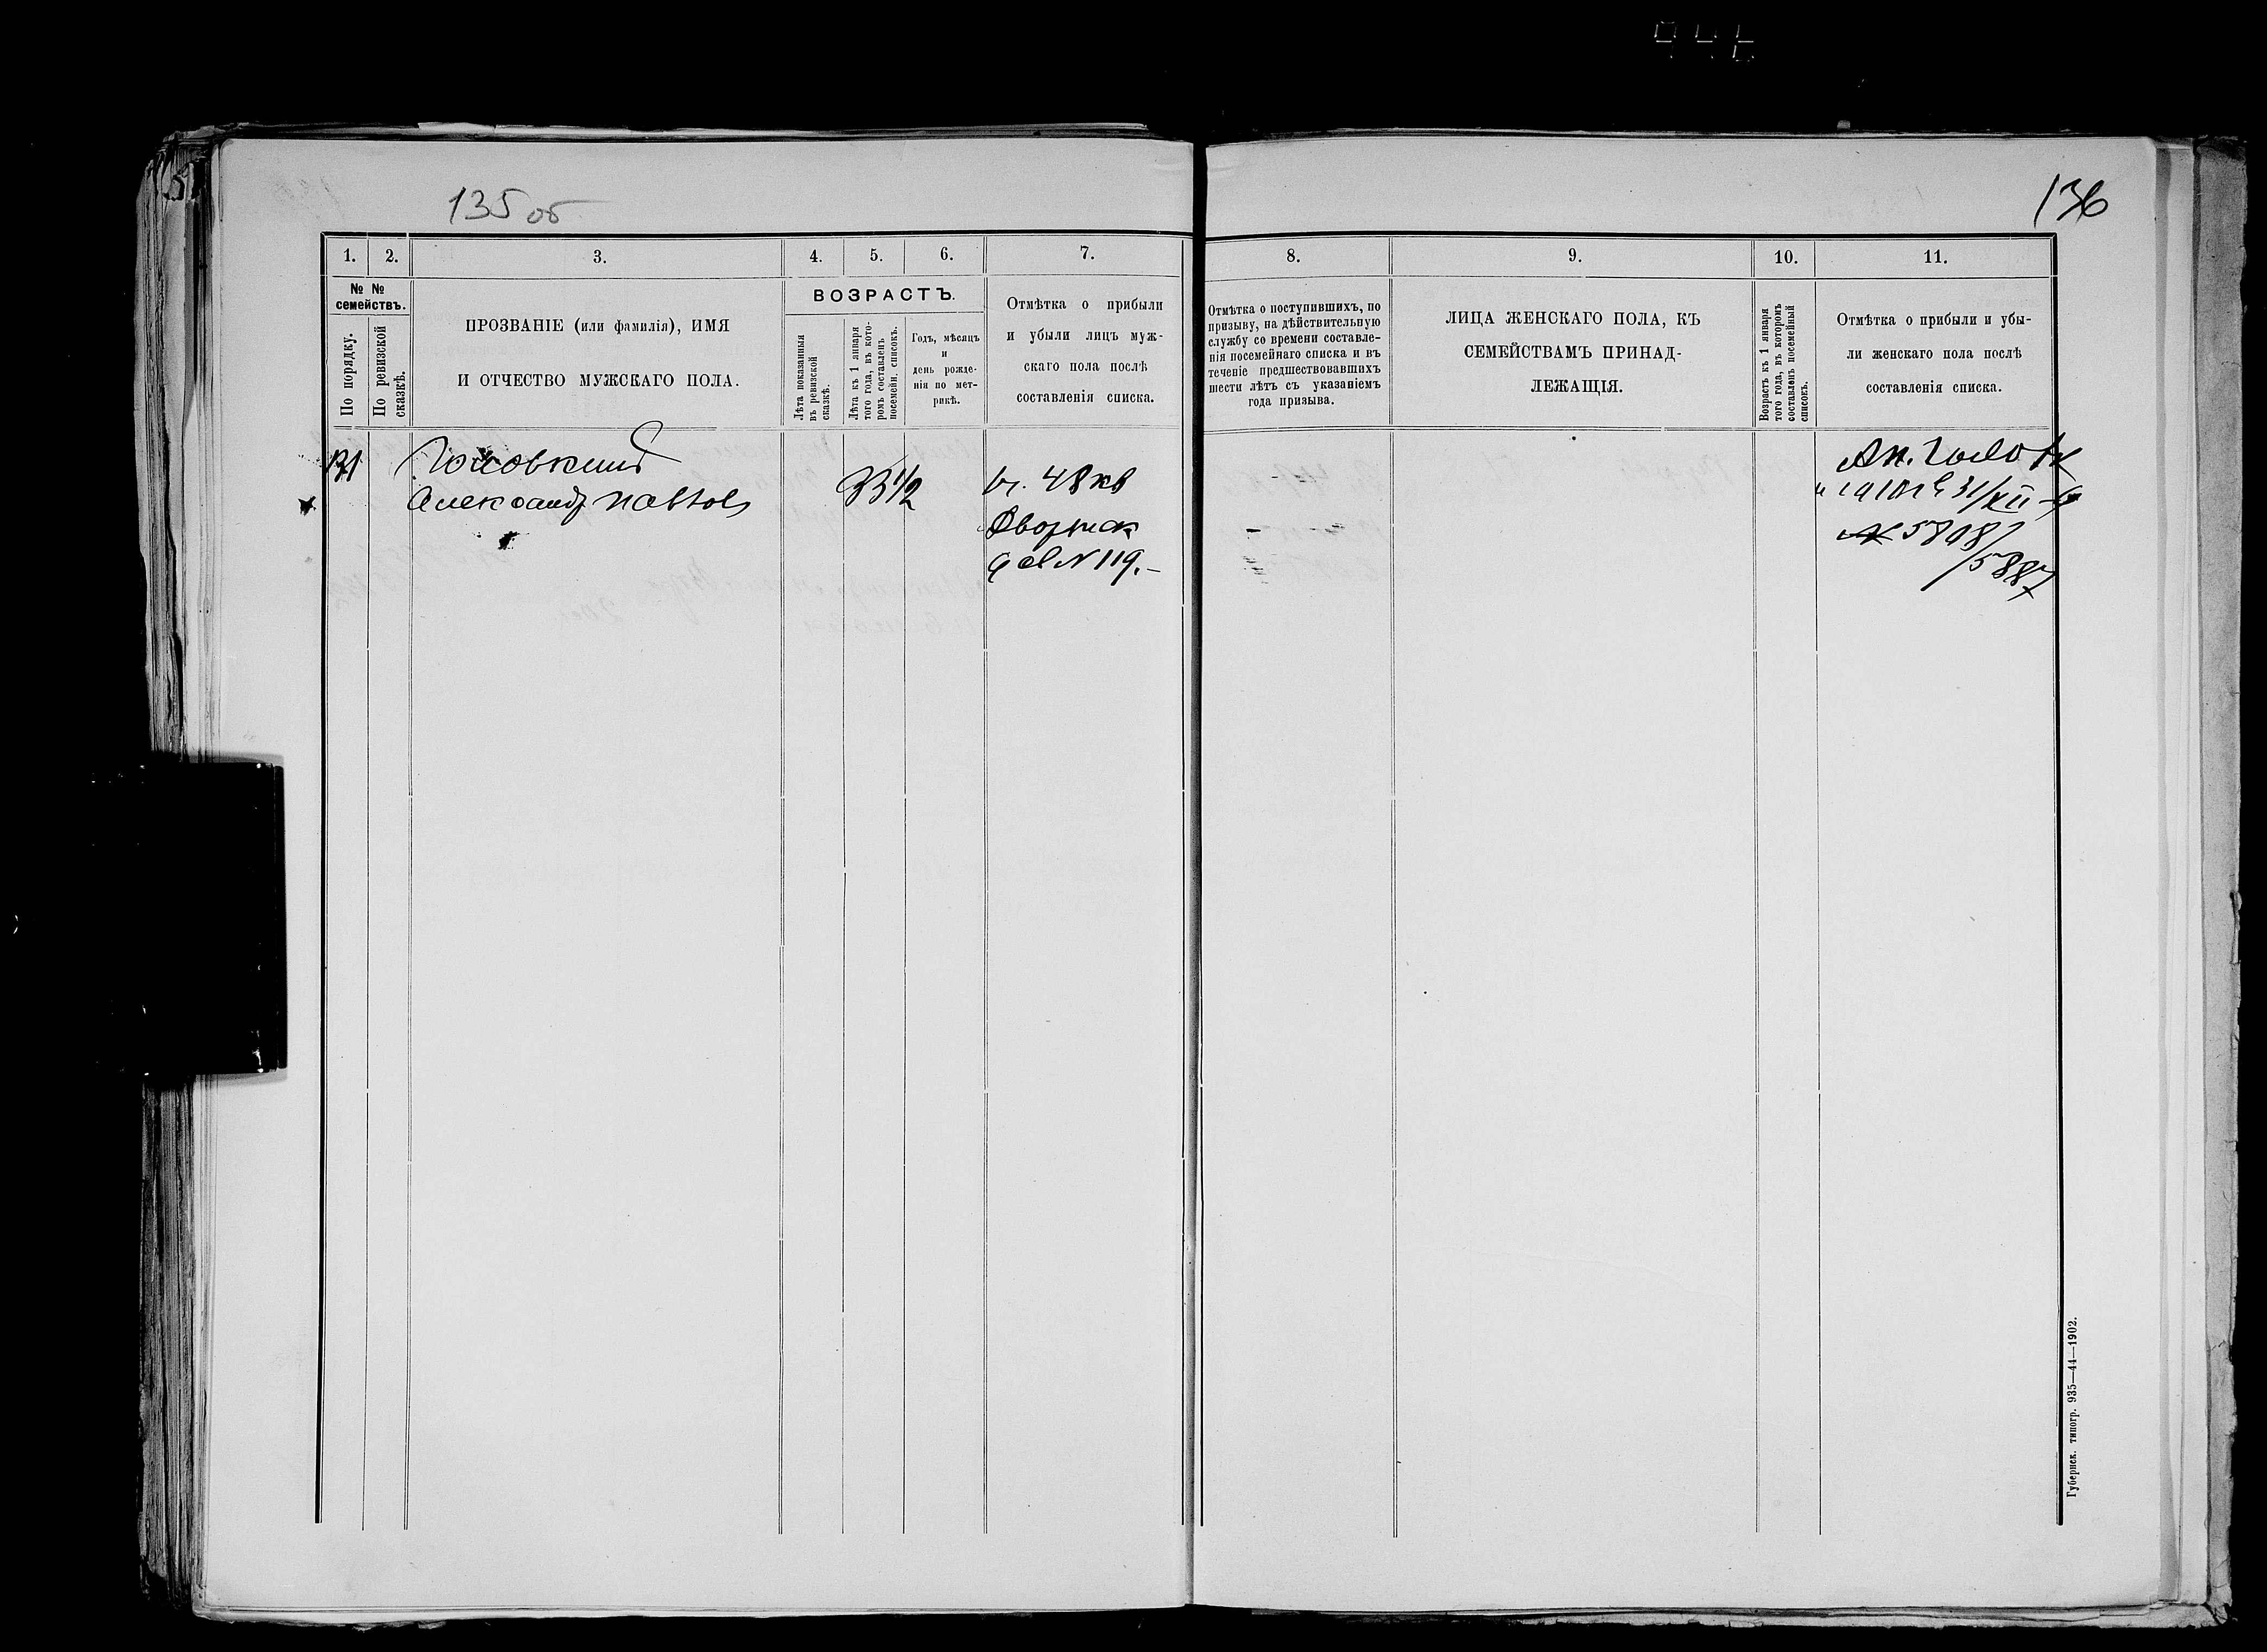 135 об
136
1.
2.
3.
4.
5.
6.
7.
8.
9.
10.
11.
№ №
семействъ.
По порядку.
По ревизской
сказкѣ.
ПРОЗВАНІЕ (или фамилія), ИМЯ
И ОТЧЕСТВО МУЖСКАГО ПОЛА.
ВОЗРАСТЪ.
Лѣта показанныя
въ ревизской
сказкѣ.
Лѣта къ 1 января
того года, въ кото-
ромъ составленъ
посемейн. списокъ.
Годъ, мѣсяцъ
и
день рожде-
нія по мет-
рикѣ.
Отмѣтка о прибыли
и убыли лицъ муж-
скаго пола послѣ
составленія списка.
Отмѣтка о поступившихъ, по
призыву, на дѣйствительную
службу со времени составле-
нія посемейнаго списка и въ
теченіе предшествовавшихъ
шести лѣтъ съ указаніемъ
года призыва.
ЛИЦА ЖЕНСКАГО ПОЛА, КЪ
СЕМЕЙСТВАМЪ ПРИНАД-
ЛЕЖАЩІЯ.
Возрастъ къ 1 января
того года, въ которомъ
составленъ посемейный
списокъ.
Отмѣтка о прибыли и убы-
ли женскаго пола послѣ
составленія списка.
Александр Павлов
33 1/2
48 кв
№ 119.-
31/XII
5808/
/5887
Губернск. типогр. 935—44—1902.